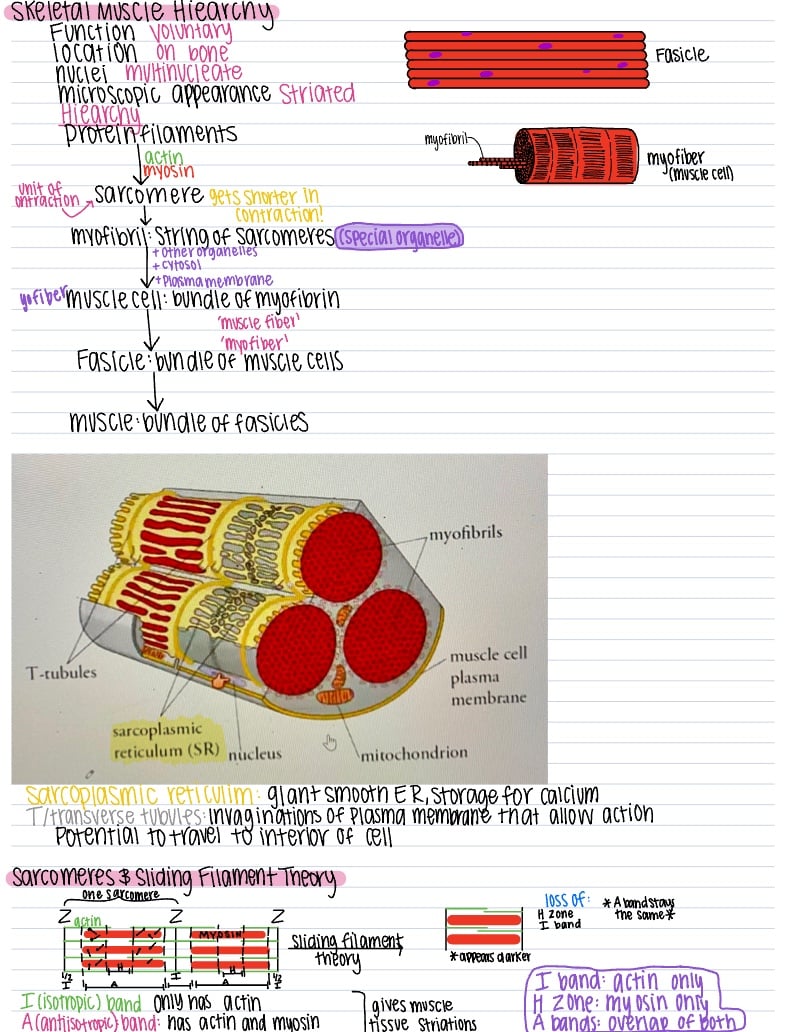 Skeletal Muscle Hiearchy
Function voluntary
location on bone
nuclei multinucleate
microscopic appearance Striated
Hiearchy
Protein filaments
actin
myosin
unit of
ontraction
sarcomere gets shorter in
contraction!
myofibril: String of sarcomeres (special organelle)
+ other organelles
+ cytosol
+ Plasma membrane
yofiber muscle cell: bundle of myofibrin
'muscle fiber'
'myofiber'
Fasicle: bundle of muscle cells
muscle: bundle of fasicles
Fasicle
myofibril
myofiber
(muscle cell)
myofibrils
T-tubules
muscle cell
plasma
membrane
sarcoplasmic
reticulum (SR)
nucleus
mitochondrion
Sarcoplasmic reticulim: giant smooth ER, storage for calcium
T/transverse tubules: invaginations of plasma membrane that allow action
Potential to travel to interior of cell
Sarcomeres & Sliding Filament Theory
one sarcomere
Z Z Z
actin
MYOSIN
H H
1/2 I I 1/2 I
A A
Sliding filament
theory
*appears darker
loss of:
H zone
I band
*A band stays
the same*
I (isotropic) band only has actin
A (antiisotropic) band: has actin and myosin
gives muscle
tissue striations
I band: actin only
H zone: myosin only
A bands: overlap of both